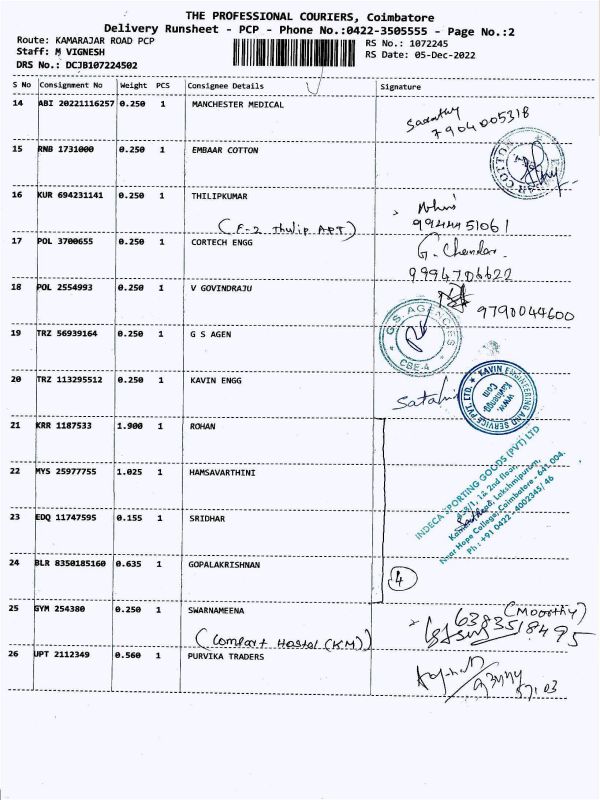 THE PROFESSIONAL COURIERS, Coimbatore
Delivery Runsheet - PCP - Phone No.:0422-3505555 - Page No.:2
Route: KAMARAJAR ROAD PCP RS No.: 1072245
Staff: M VIGNESH RS Date: 05-Dec-2022
DRS No.: DCJB107224502
S No Consignment No Weight PCS Consignee Details Signature
14 ABI 20221116257 0.250 1 MANCHESTER MEDICAL
7904005318
15 RNB 1731000 0.250 1 EMBAAR COTTON
16 KUR 694231141 0.250 1 THILIPKUMAR
(F-2 Thulip APT) 9944451061
17 POL 3700655 0.250 1 CORTECH ENGG G. Chendar
9994706622
18 POL 2554993 0.250 1 V GOVINDRAJU
9790044600
19 TRZ 56939164 0.250 1 G S AGEN
G.S. AGENCIES
CBE-4
20 TRZ 113295512 0.250 1 KAVIN ENGG
KAVIN ENGINEERING AND SERVICE PVT. LTD.
www.
Kavinengg.
Com
21 KRR 1187533 1.900 1 ROHAN
22 MYS 25977755 1.025 1 HAMSAVARTHINI
INDECA SPORTING GOODS (PVT) LTD
#38/1, 1& 2nd floor,
Kamaraj Road, Lakshmipuram,
Near Hope College, Coimbatore - 641 004.
Ph : +91 0422 - 4002345/ 46
23 EDQ 11747595 0.155 1 SRIDHAR
24 BLR 8350185160 0.635 1 GOPALAKRISHNAN
4
25 GYM 254380 0.250 1 SWARNAMEENA
(Moorthy)
6383518495
(Comfort Hostel (KM))
26 UPT 2112349 0.560 1 PURVIKA TRADERS